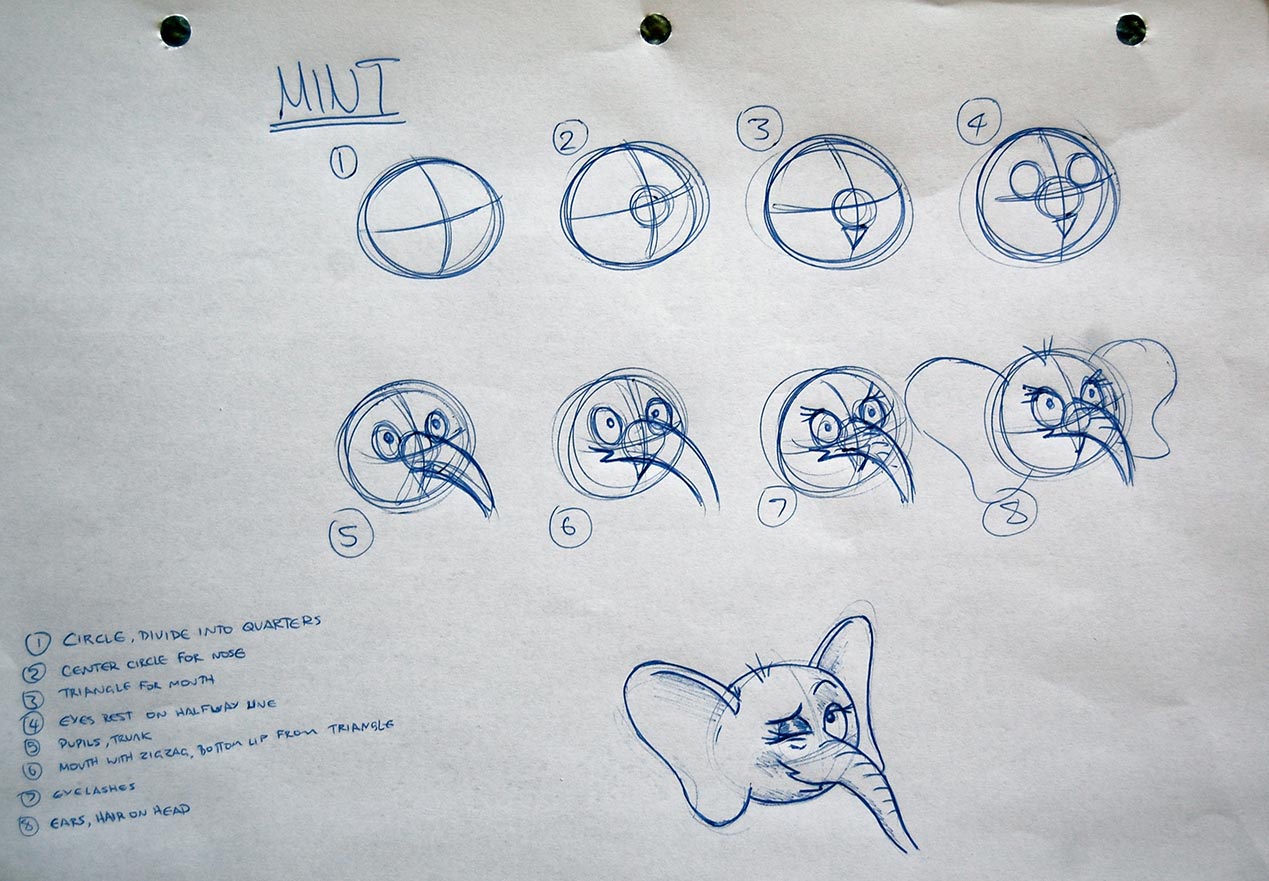 MINT
1 2 3 4
5 6 7 8
1 CIRCLE, DIVIDE INTO QUARTERS
2 CENTER CIRCLE FOR NOSE
3 TRIANGLE FOR MOUTH
4 EYES REST ON HALFWAY LINE
5 PUPILS, TRUNK
6 MOUTH WITH ZIGZAG, BOTTOM LIP FROM TRIANGLE
7 EYELASHES
8 EARS, HAIR ON HEAD